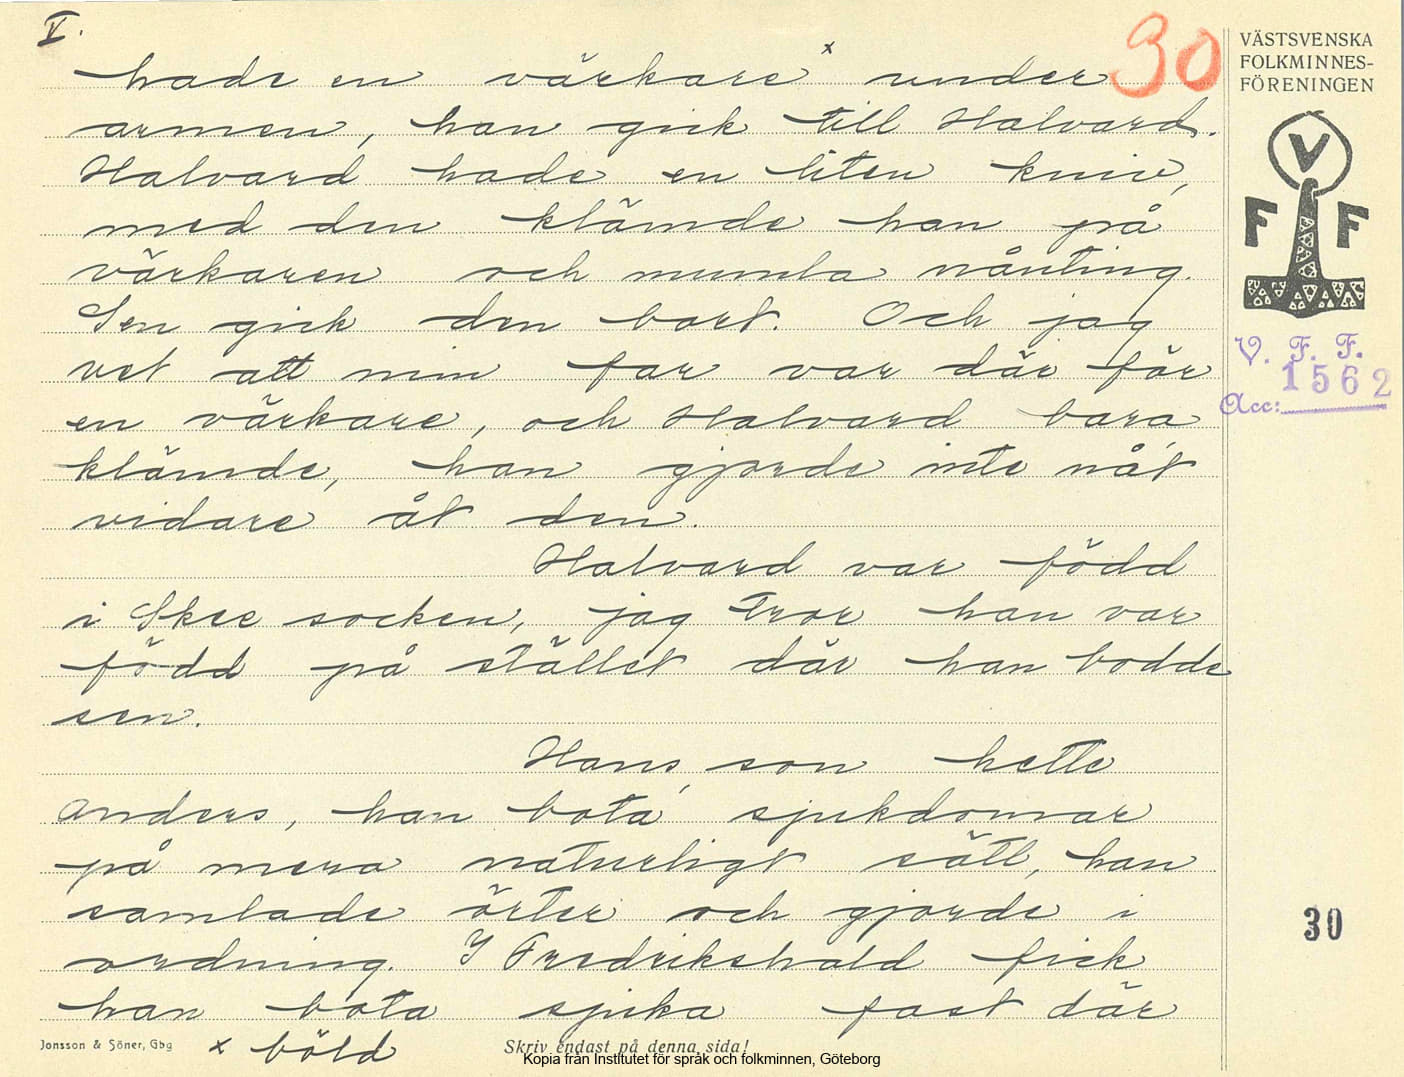 V.
30
hade en värkare x under
armen, han gick till Halvard.
Halvard hade en liten kniv,
med den klämde han på
värkaren och mumla nånting.
Sen gick den bort. Och jag
vet att min far var där för
en värkare, och Halvard bara
klämde, han gjorde inte nåt
vidare åt den.
Halvard var född
i Skee socken, jag tror han var
född på stället där han bodde
sen.
Hans son hette
Anders, han bota sjukdomar
på mera naturligt sätt, han
samlade örter och gjorde i
ordning. I Fredrikshald fick
han bota sjuka fast där
x böld
Jonsson & Söner, Gbg
Skriv endast på denna sida!
Kopia från Institutet för språk och folkminnen, Göteborg
VÄSTSVENSKA
FOLKMINNES-
FÖRENINGEN
V
F F
V. F. F.
1562
Acc:
30